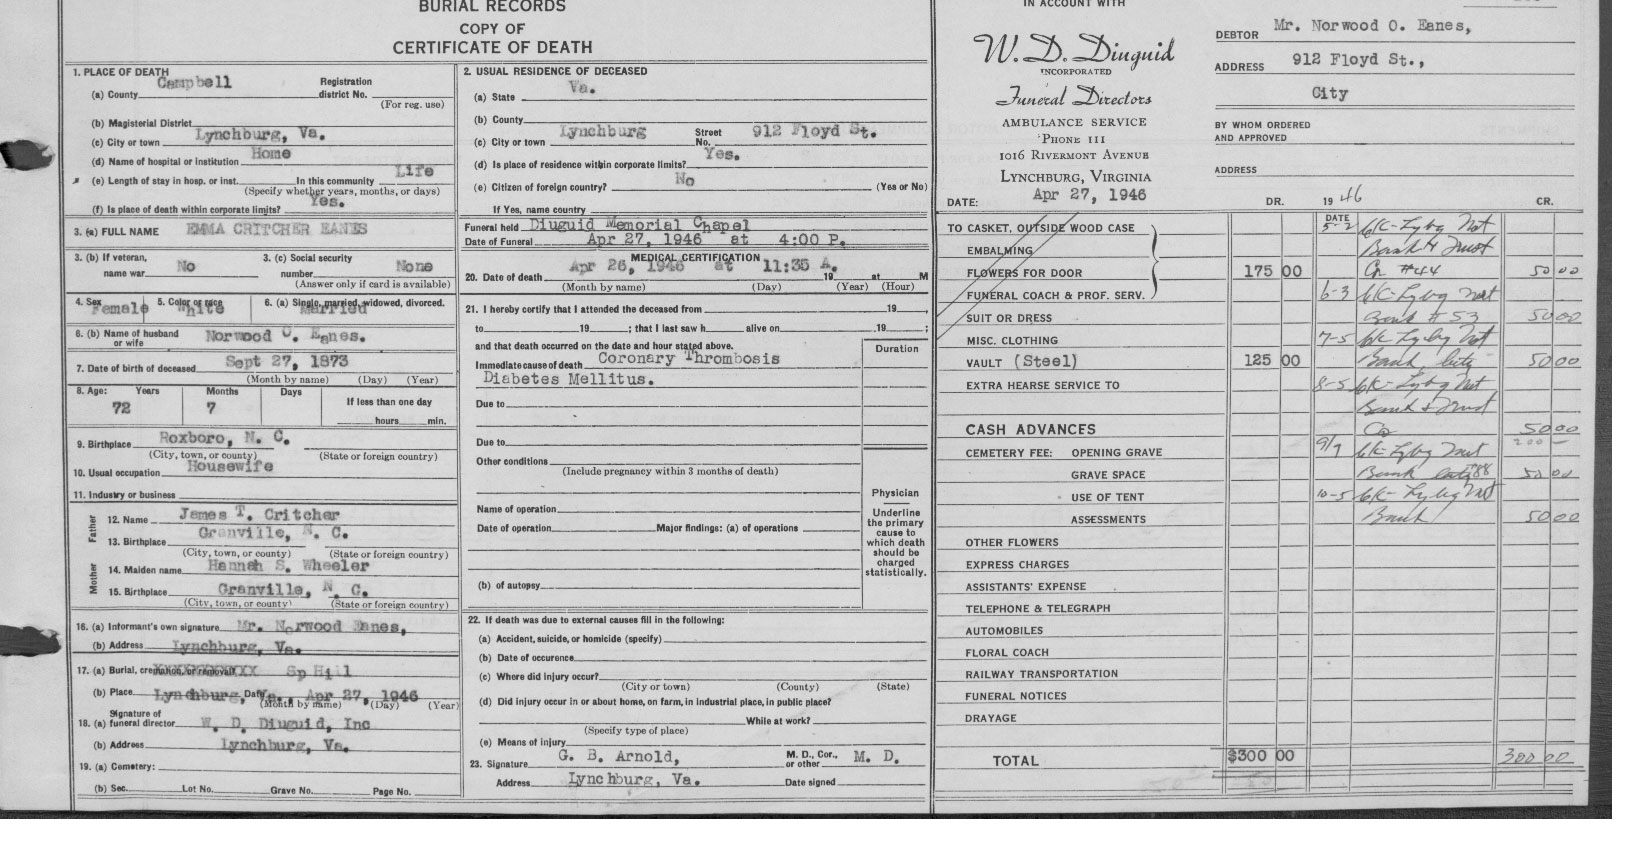 BURIAL RECORDS
COPY OF
CERTIFICATE OF DEATH
1. PLACE OF DEATH
(a) County Campbell Registration district No.
(For reg. use)
(b) Magisterial District
(c) City or town Lynchburg, Va.
(d) Name of hospital or institution Home
(e) Length of stay in hosp. or inst. In this community Life
(Specify whether years, months, or days)
(f) Is place of death within corporate limits? Yes.
3. (a) FULL NAME EMMA CRITCHER EANES
3. (b) If veteran, name war No 3. (c) Social security number None
(Answer only if card is available)
4. Sex Female 5. Color or race White 6. (a) Single, married, widowed, divorced. Married
6. (b) Name of husband or wife Norwood O. Eanes.
7. Date of birth of deceased Sept 27, 1873
(Month by name) (Day) (Year)
8. Age: Years Months Days If less than one day
72 7 hours min.
9. Birthplace Roxboro, N. C.
(City, town, or county) (State or foreign country)
10. Usual occupation Housewife
11. Industry or business
Father
12. Name James T. Critcher
13. Birthplace Granville, N. C.
(City, town, or county) (State or foreign country)
Mother
14. Maiden name Hannah S. Wheeler
15. Birthplace Granville, N. C.
(City, town, or county) (State or foreign country)
16. (a) Informant's own signature Mr. Norwood Eanes,
(b) Address Lynchburg, Va.
17. (a) Burial, cremation, or removal XXXXXXXXXXX Sp Hill
(b) Place Lynchburg, Va., Date Apr 27, 1946
(Month by name) (Day) (Year)
18. (a) Signature of funeral director W. D. Diuguid, Inc
(b) Address Lynchburg, Va.
19. (a) Cemetery:
(b) Sec. Lot No. Grave No. Page No.
2. USUAL RESIDENCE OF DECEASED
(a) State Va.
(b) County
(c) City or town Lynchburg Street No. 912 Floyd St.
(d) Is place of residence within corporate limits? Yes.
(e) Citizen of foreign country? No (Yes or No)
If Yes, name country
Funeral held Diuguid Memorial Chapel
Date of Funeral Apr 27, 1946 at 4:00 P.
MEDICAL CERTIFICATION
20. Date of death Apr 26, 1946 at 11:35 A. 19 at M
(Month by name) (Day) (Year) (Hour)
21. I hereby certify that I attended the deceased from 19 ,
to 19 ; that I last saw h alive on 19 ;
and that death occurred on the date and hour stated above.
Duration
Immediate cause of death Coronary Thrombosis
Diabetes Mellitus.
Due to
Due to
Other conditions
(Include pregnancy within 3 months of death)
Name of operation
Date of operation Major findings: (a) of operations
(b) of autopsy
Physician
Underline
the primary
cause to
which death
should be
charged
statistically.
22. If death was due to external causes fill in the following:
(a) Accident, suicide, or homicide (specify)
(b) Date of occurence
(c) Where did injury occur?
(City or town) (County) (State)
(d) Did injury occur in or about home, on farm, in industrial place, in public place?
While at work?
(Specify type of place)
(e) Means of injury
23. Signature G. B. Arnold, M. D., Cor., or other M. D.
Address Lynchburg, Va. Date signed
IN ACCOUNT WITH
W. D. Diuguid
INCORPORATED
Funeral Directors
AMBULANCE SERVICE
'PHONE 111
1016 RIVERMONT AVENUE
LYNCHBURG, VIRGINIA
DATE: Apr 27, 1946
DEBTOR Mr. Norwood O. Eanes,
ADDRESS 912 Floyd St.,
City
BY WHOM ORDERED
AND APPROVED
ADDRESS
DR. 1946 CR.
DATE
TO CASKET, OUTSIDE WOOD CASE 5-2 Ck-Lybg Nat
EMBALMING Bank & Trust
FLOWERS FOR DOOR 175 00 Co #44 50 00
FUNERAL COACH & PROF. SERV. 6-3 Ck-Lybg Nat
SUIT OR DRESS Bank #53 50 00
MISC. CLOTHING 7-5 Ck-Lybg Nat
VAULT (Steel) 125 00 Bank 50 00
EXTRA HEARSE SERVICE TO 8-5 Ck-Lybg Nat
Bank & Trust
CASH ADVANCES Co 50 00
200
CEMETERY FEE: OPENING GRAVE 9/7 Ck-Lybg Nat
GRAVE SPACE Bank 50 00
USE OF TENT 10-5 Ck-Lybg Nat
ASSESSMENTS Bank 50 00
OTHER FLOWERS
EXPRESS CHARGES
ASSISTANTS' EXPENSE
TELEPHONE & TELEGRAPH
AUTOMOBILES
FLORAL COACH
RAILWAY TRANSPORTATION
FUNERAL NOTICES
DRAYAGE
TOTAL $300 00 300 00